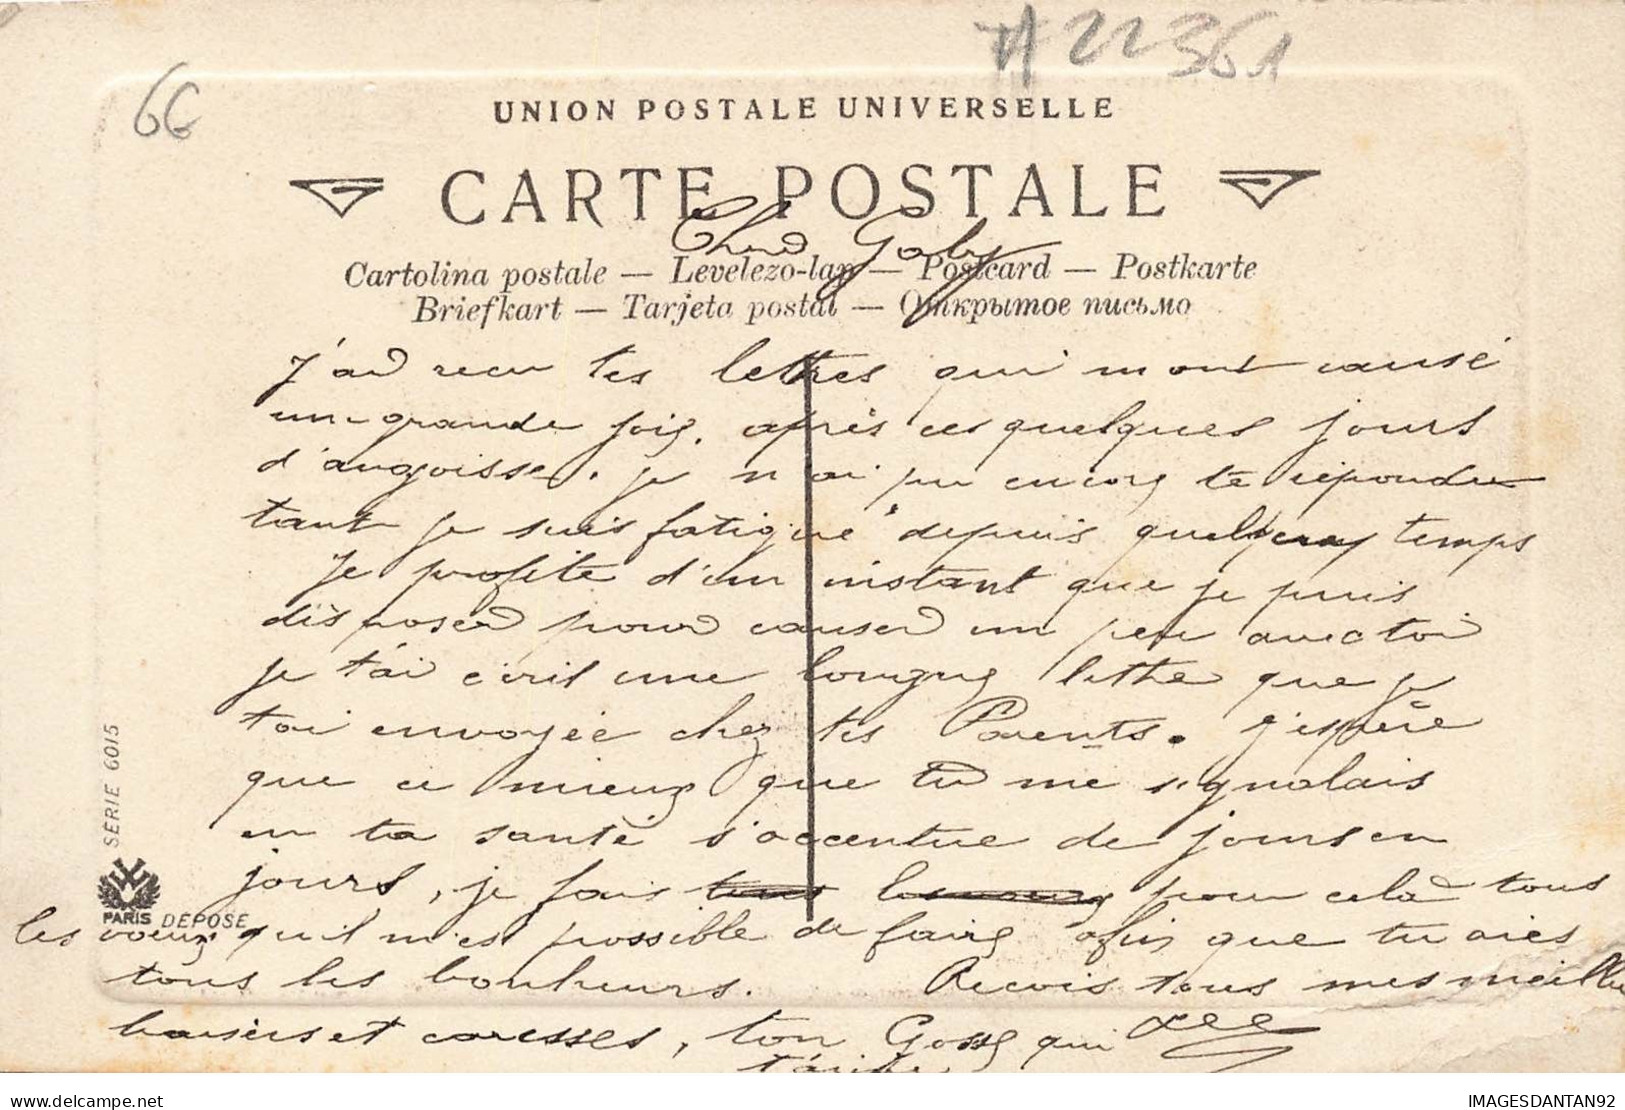 # 22361
6€
UNION POSTALE UNIVERSELLE
CARTE POSTALE
Cher Gaby
Cartolina postale — Levelezo-lap — Postcard — Postkarte
Briefkart — Tarjeta postal — Открытое письмо
J'ai recu tes lettres qui mont causé
une grande joie, après ces quelques jours
d'angoisse. je n'ai pu encore te répondre
tant je suis fatigué depuis quelque temps
Je profite d'un instant que je puis
disposer pour causer un peu avec toi
je t'ai écrit une longue lettre que je
t'ai envoyée chez tes Parents. j'espère
que ce mieux que tu me signalais
en ta santé s'accentue de jours en
jours, je fais pour cela tous
les voeux qu'il m'es possible de faire afin que tu aies
tous les bonheurs. Recois tous mes meilleu
baisers et caresses, ton Gosse qui
t'aime
SERIE 6015
PARIS DEPOSE
IMAGESDANTAN92